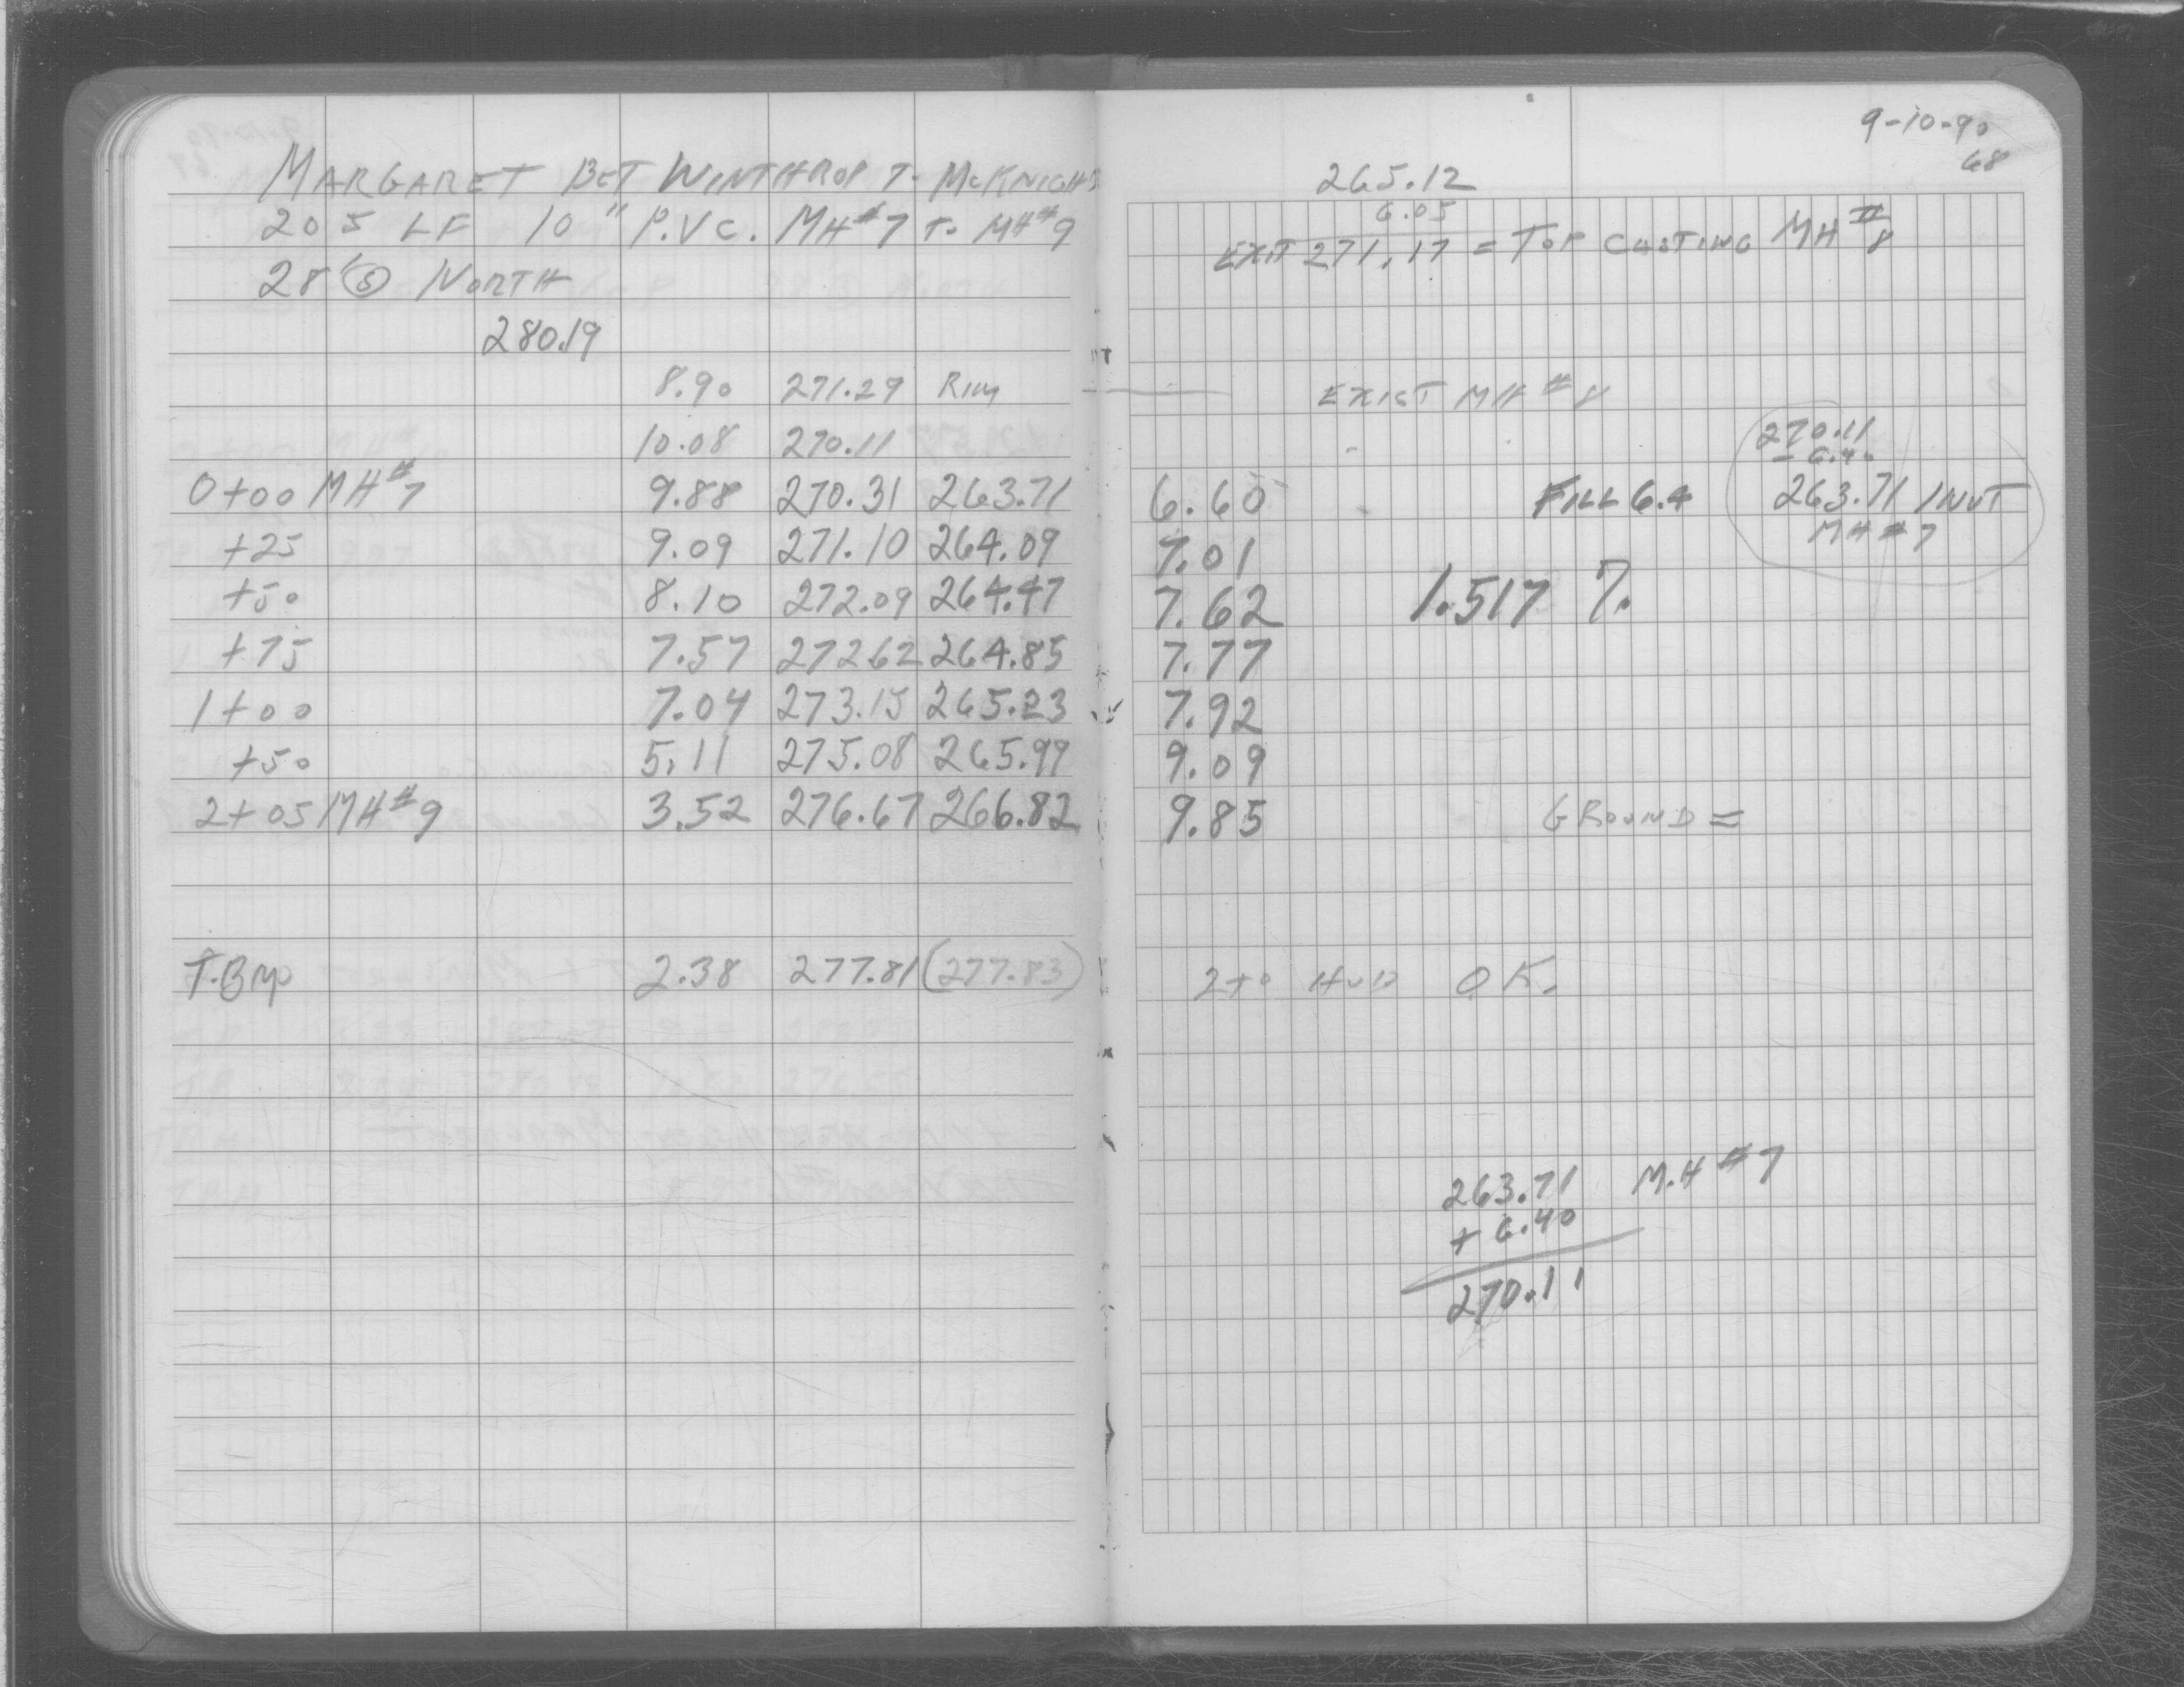 MARGARET BET WINTHROP To McKNIGHT
205 LF 10" P.V.C. MH#7 To MH#9
28' Ⓢ NORTH
280.19
8.90 271.29 RIM
10.08 270.11
0+00 MH#7 9.88 270.31 263.71
+25 9.09 271.10 264.09
+50 8.10 272.09 264.47
+75 7.57 272.62 264.85
1+00 7.04 273.15 265.23
+50 5.11 275.08 265.99
2+05 MH#9 3.52 276.67 266.82
T.BM 2.38 277.81 (277.83)
9-10-90
68
265.12
6.05
EXIT 271.17 = TOP CASTING MH#8
EXIST MH#8
270.11
- 6.40
6.60 FILL 6.4 263.71 INVT
7.01 MH#7
7.62 1.517 %
7.77
7.92
9.09
9.85 GROUND =
2+0 HUB O.K.
263.71 M.H#7
+ 6.40
270.11